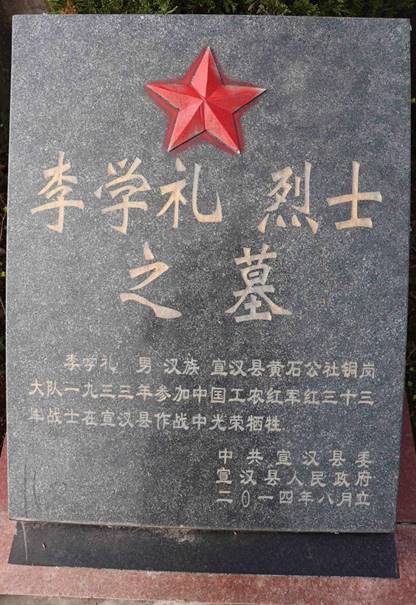 李学礼 烈士
之墓
李学礼 男 汉族 宣汉县黄石公社铜岗
大队一九三三年参加中国工农红军红三十三
军战士在宣汉县作战中光荣牺牲.
中共宣汉县委
宣汉县人民政府
二0一四年八月立